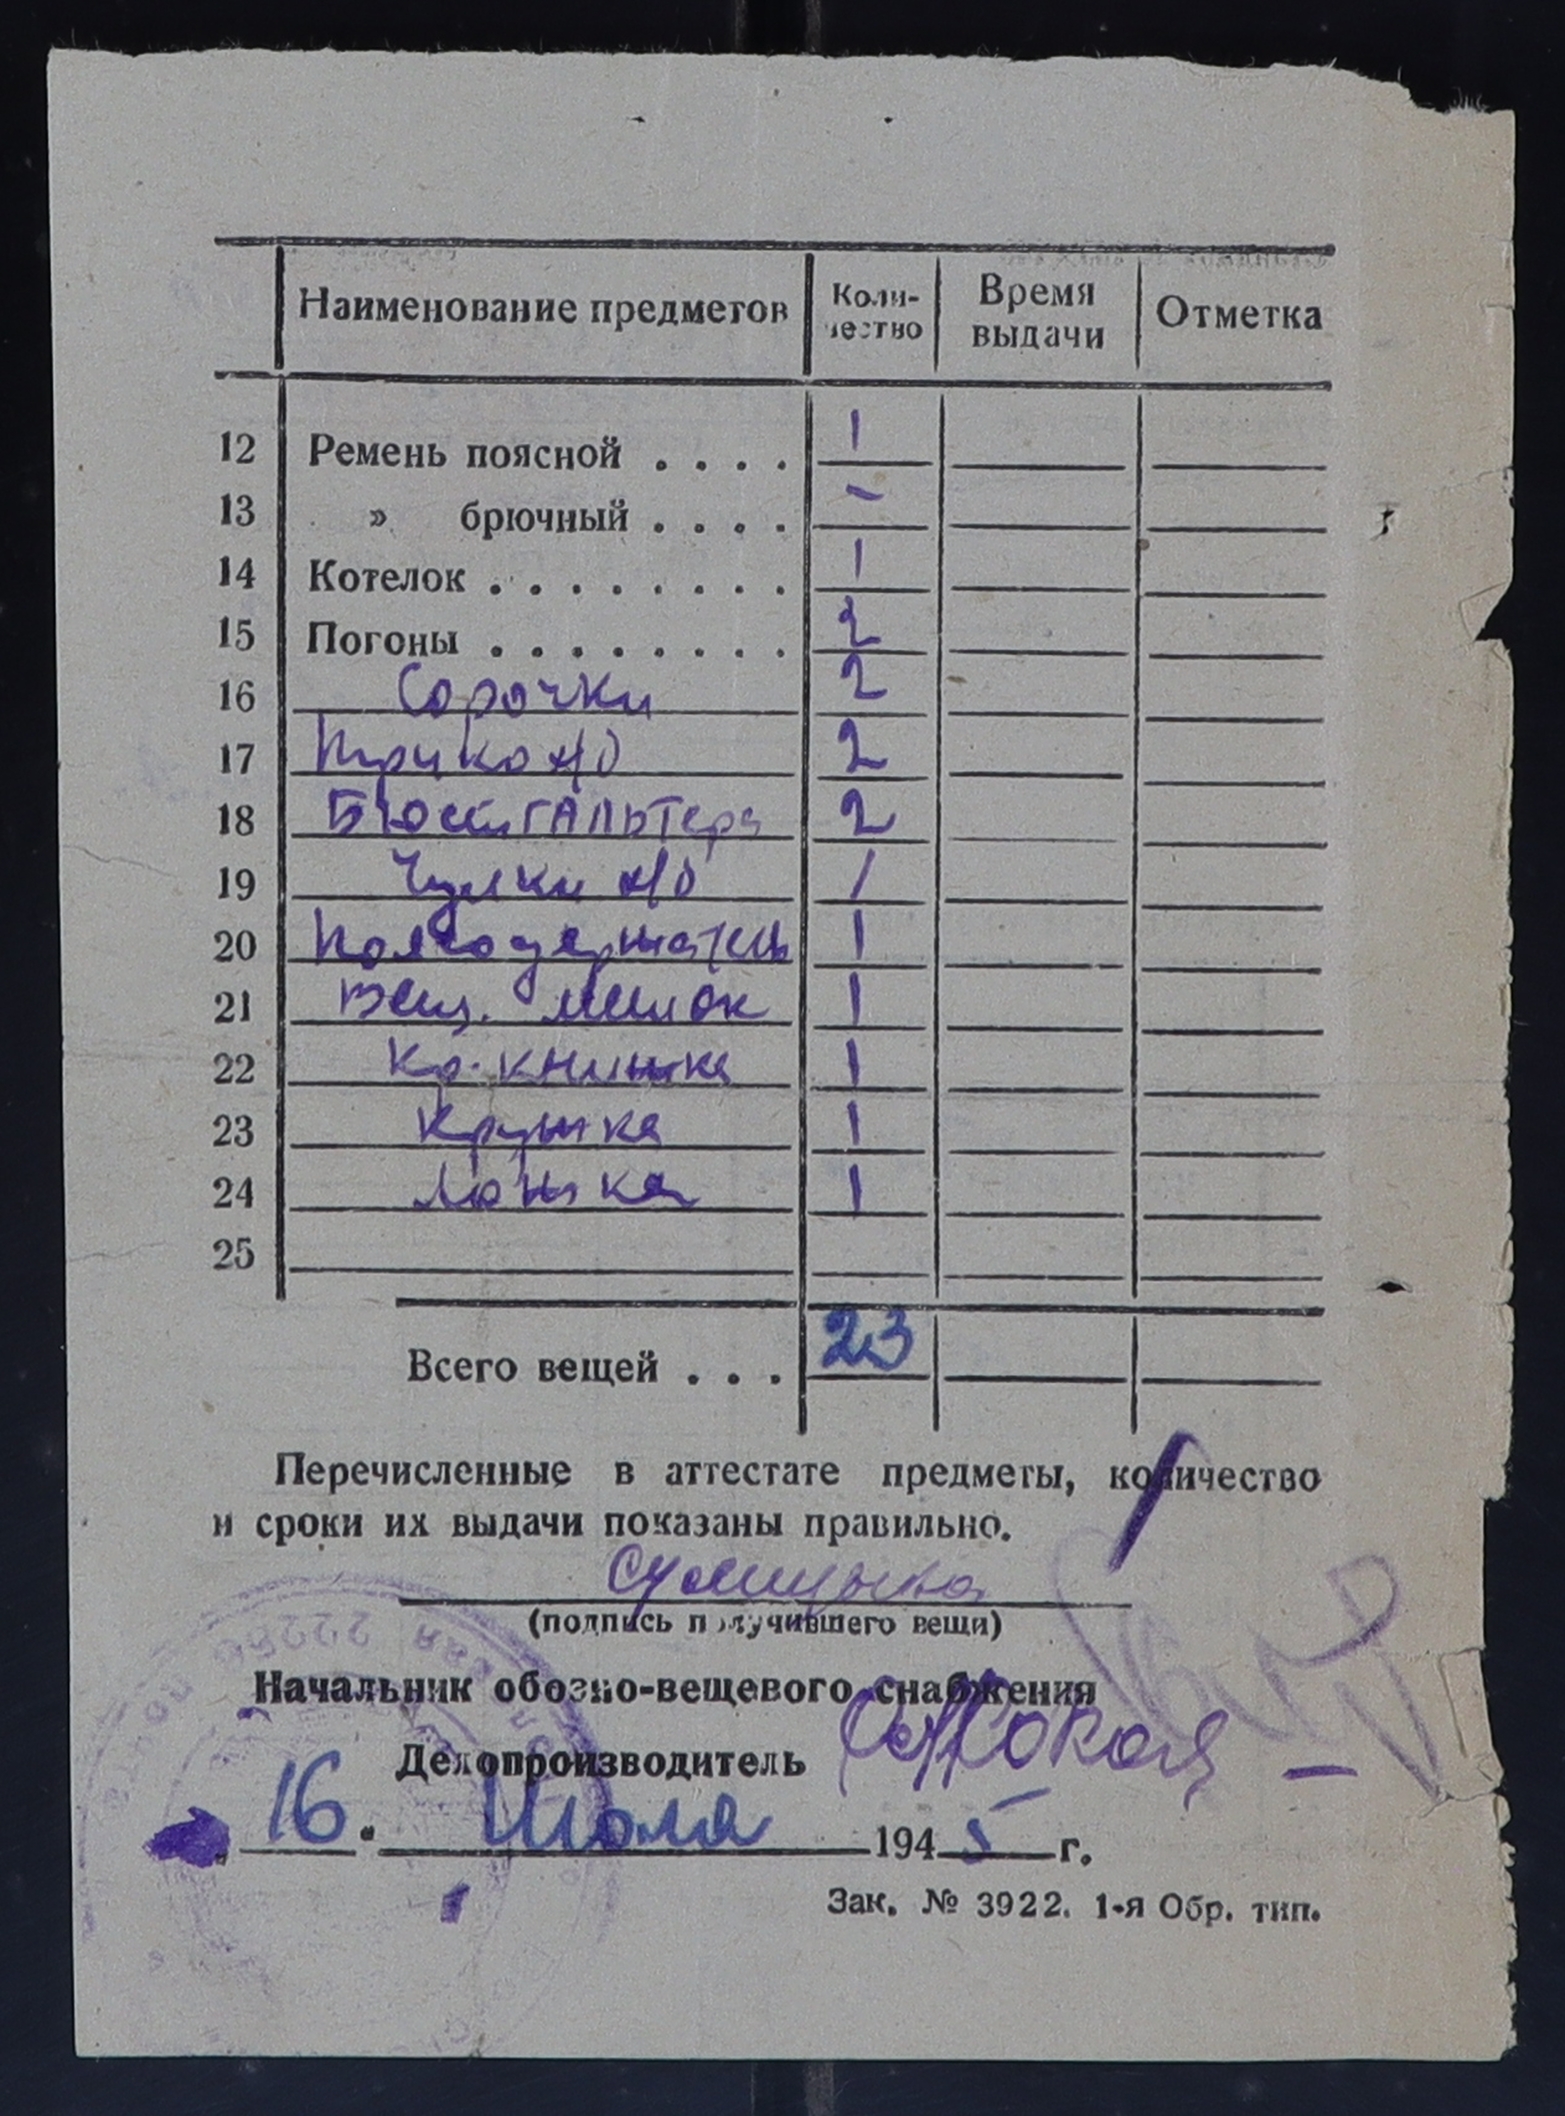 Наименование предметов Коли- чество Время выдачи Отметка
12 Ремень поясной . . . . 1
13 » брючный . . . . –
14 Котелок . . . . . . . . 1
15 Погоны . . . . . . . . 2
16 Сорочки 2
17 Трико х/б 2
18 Бюстгальтера 2
19 Чулки х/б 1
20 Поясодержатель 1
21 Вещ. мешок 1
22 Кр. книжка 1
23 Кружка 1
24 Ложка 1
25
Всего вещей . . . 23
Перечисленные в аттестате предметы, количество
и сроки их выдачи показаны правильно.
(подпись получившего вещи)
Начальник обозно-вещевого снабжения
Делопроизводитель
16. Июля 1945 г.
Зак. № 3922. 1-я Обр. тип.